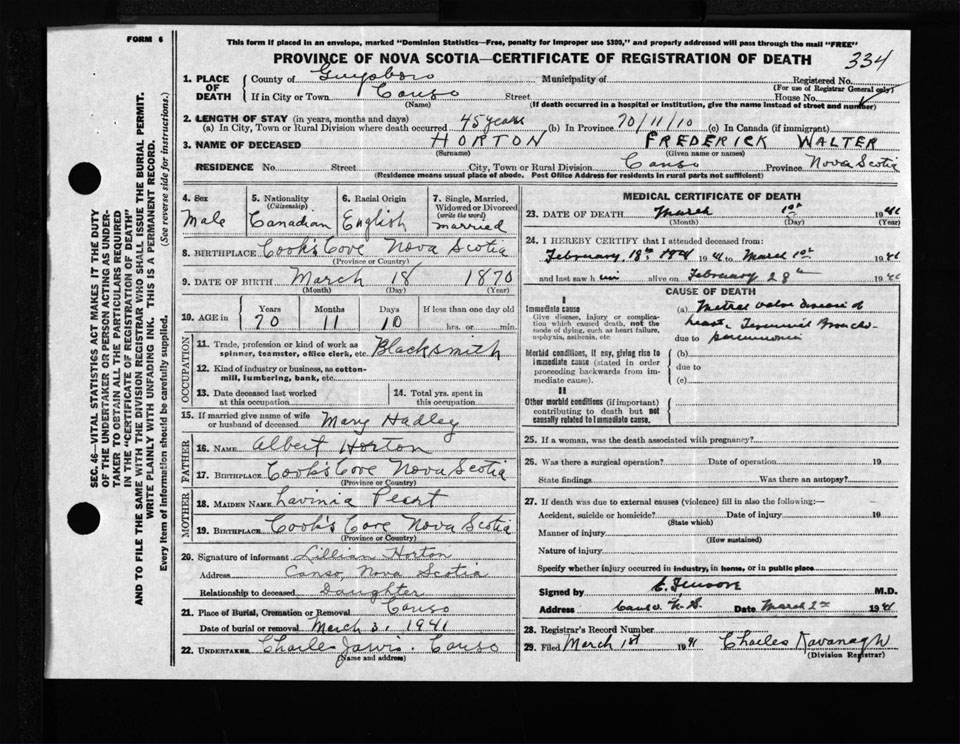 FORM 6
This form if placed in an envelope, marked "Dominion Statistics—Free, penalty for improper use $300," and properly addressed will pass through the mail "FREE"
PROVINCE OF NOVA SCOTIA—CERTIFICATE OF REGISTRATION OF DEATH 334
SEC. 46—VITAL STATISTICS ACT MAKES IT THE DUTY
OF THE UNDERTAKER OR PERSON ACTING AS UNDER-
TAKER TO OBTAIN ALL THE PARTICULARS REQUIRED
IN THE "CERTIFICATE OF REGISTRATION OF DEATH"
AND TO FILE THE SAME WITH THE DIVISION REGISTRAR WHO SHALL ISSUE THE BURIAL PERMIT.
WRITE PLAINLY WITH UNFADING INK. THIS IS A PERMANENT RECORD.
Every item of information should be carefully supplied. (See reverse side for instructions.)
1. PLACE OF DEATH
County of Guysboro Municipality of Registered No.
(For use of Registrar General only)
If in City or Town Canso Street House No.
(Name) (If death occurred in a hospital or institution, give the name instead of street and number)
2. LENGTH OF STAY (in years, months and days)
(a) In City, Town or Rural Division where death occurred 45 years (b) In Province 70/11/10 (c) In Canada (if immigrant)
3. NAME OF DECEASED HORTON FREDERICK WALTER
(Surname) (Given name or names)
RESIDENCE No. Street City, Town or Rural Division Canso Province Nova Scotia
(Residence means usual place of abode. Post Office Address for residents in rural parts not sufficient)
4. Sex
Male
5. Nationality
(Citizenship)
Canadian
6. Racial Origin
English
7. Single, Married, Widowed or Divorced
(write the word)
married
8. BIRTHPLACE Cook's Cove Nova Scotia
(Province or Country)
9. DATE OF BIRTH March 18 1870
(Month) (Day) (Year)
10. AGE in Years Months Days If less than one day old
70 11 10 hrs. or min.
OCCUPATION
11. Trade, profession or kind of work as
spinner, teamster, office clerk, etc. Blacksmith
12. Kind of industry or business, as cotton-
mill, lumbering, bank, etc.
13. Date deceased last worked
at this occupation
14. Total yrs. spent in
this occupation
15. If married give name of wife
or husband of deceased Mary Hadley
FATHER
16. NAME Albert Horton
17. BIRTHPLACE Cook's Cove Nova Scotia
(Province or Country)
MOTHER
18. MAIDEN NAME Lavinia
19. BIRTHPLACE Cook's Cove Nova Scotia
(Province or Country)
20. Signature of informant Lillian Horton
Address Canso, Nova Scotia
Relationship to deceased Daughter
21. Place of Burial, Cremation or Removal Canso
Date of burial or removal March 3, 1941
22. UNDERTAKER Charles Jarvis. Canso
(Name and address)
MEDICAL CERTIFICATE OF DEATH
23. DATE OF DEATH March 1st 1941
(Month) (Day) (Year)
24. I HEREBY CERTIFY that I attended deceased from:
February, 18th 1941 to March 1st 1941
and last saw him alive on February 28th 1941
CAUSE OF DEATH
I
Immediate cause
Give disease, injury or complica-
tion which caused death, not the
mode of dying, such as heart failure,
asphyxia, asthenia, etc.
(a) Mitral valve disease of
heart, Terminal Broncho-
due to pneumonia
Morbid conditions, if any, giving rise to
immediate cause (stated in order
proceeding backwards from im-
mediate cause).
(b)
due to
(c)
II
Other morbid conditions (if important)
contributing to death but not
causally related to immediate cause.
25. If a woman, was the death associated with pregnancy?
26. Was there a surgical operation? Date of operation 19
State findings Was there an autopsy?
27. If death was due to external causes (violence) fill in also the following:—
Accident, suicide or homicide? Date of injury 19
(State which)
Manner of injury
(How sustained)
Nature of injury
Specify whether injury occurred in industry, in home, or in public place
Signed by M.D.
Address Canso N.S. Date March 2nd 1941
28. Registrar's Record Number
29. Filed March 1st 1941 Charles Kavanagh
(Division Registrar)